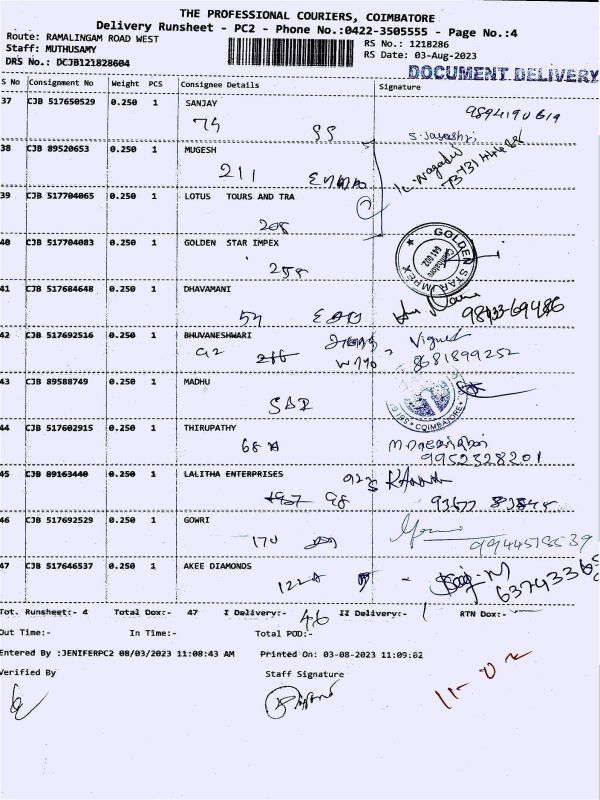 THE PROFESSIONAL COURIERS, COIMBATORE
Delivery Runsheet - PC2 - Phone No.:0422-3505555 - Page No.:4
Route: RAMALINGAM ROAD WEST
Staff: MUTHUSAMY
DRS No.: DCJB121828604
RS No.: 1218286
RS Date: 03-Aug-2023
DOCUMENT DELIVERY
S No Consignment No Weight PCS Consignee Details Signature
37 CJB 517650529 0.250 1 SANJAY
74 SS 9894190619
S. Jayashri
38 CJB 89520653 0.250 1 MUGESH
211
39 CJB 517704065 0.250 1 LOTUS TOURS AND TRA
208
40 CJB 517704083 0.250 1 GOLDEN STAR IMPEX
GOLDEN STAR IMPEX
Coimbatore
641 002
41 CJB 517684648 0.250 1 DHAVAMANI
42 CJB 517692516 0.250 1 BHUVANESHWARI
92
8681899252
43 CJB 89588749 0.250 1 MADHU
COIMBATORE
44 CJB 517602915 0.250 1 THIRUPATHY
68
9952328201
45 CJB 89163440 0.250 1 LALITHA ENTERPRISES
98
46 CJB 517692529 0.250 1 GOWRI
170
9944518539
47 CJB 517646537 0.250 1 AKEE DIAMONDS
122A
Tot. Runsheet:- 4 Total Dox:- 47 I Delivery:- 46 II Delivery:- 1 RTN Dox:-
Out Time:- In Time:- Total POD:-
Entered By :JENIFERPC2 08/03/2023 11:08:43 AM Printed On: 03-08-2023 11:09:02
Verified By Staff Signature